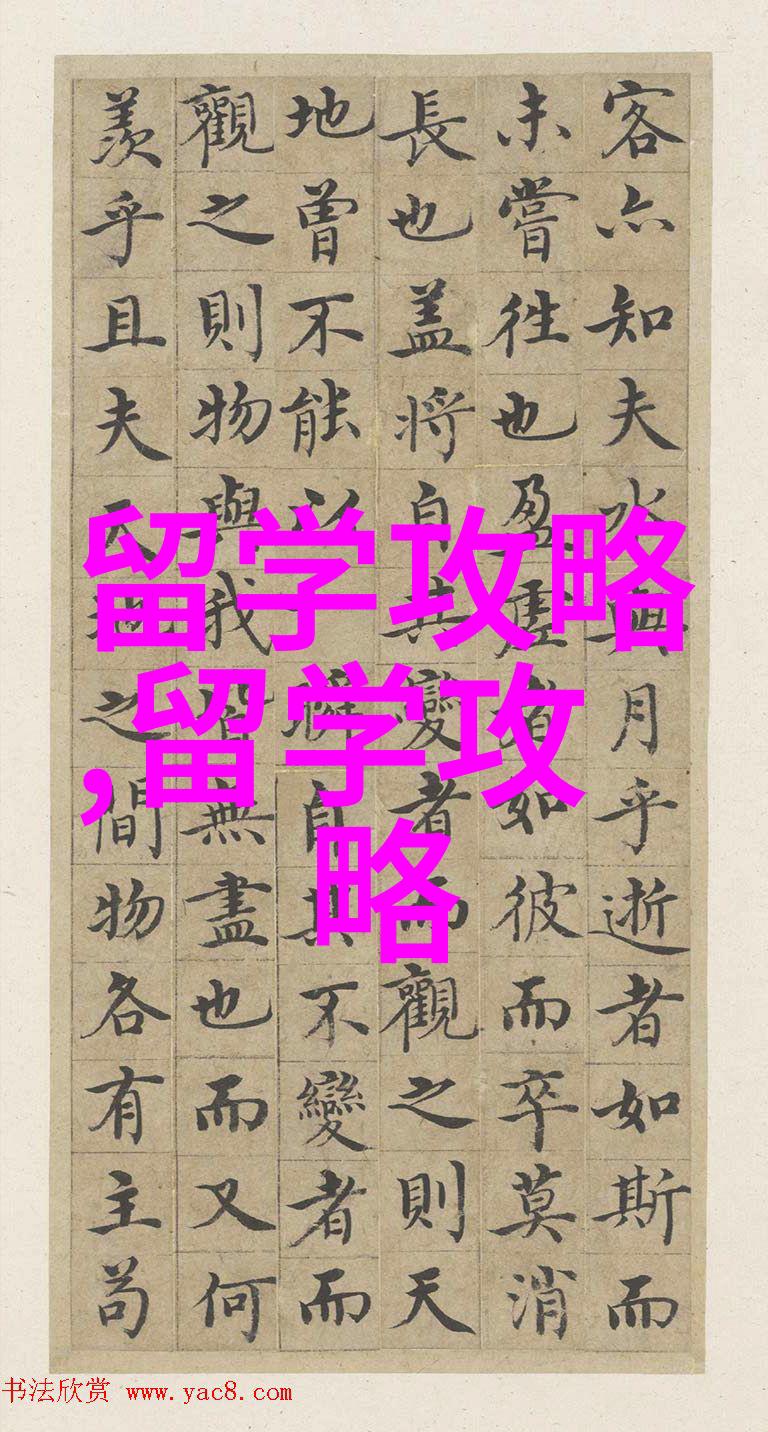 客亦知夫水與月乎逝者如斯而
未嘗往也盈虛者如彼而卒莫消
長也盖將自其變者而觀之則天
地曾不能以瞬自其不變者而
觀之則物與我皆無盡也而又何
羨乎且夫天地之間物各有主苟
留学攻略
,留学攻
略
书法欣赏 www.yac8.com